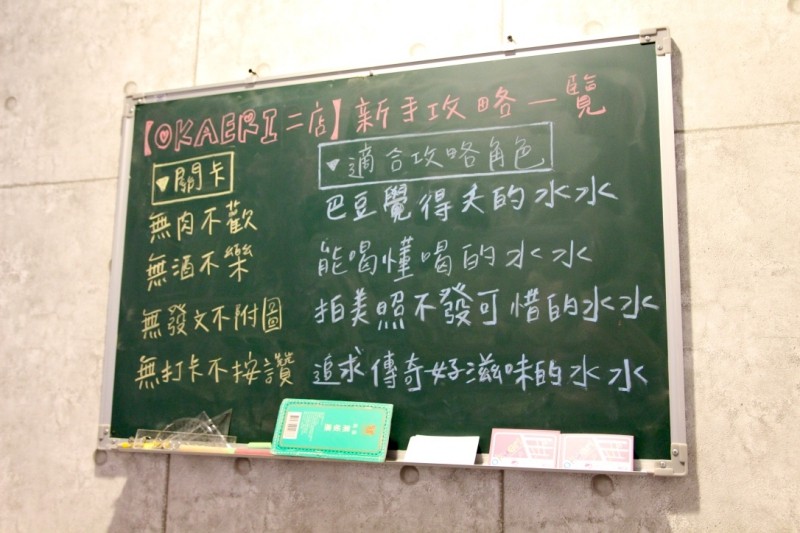 【OKAERI二店】新手攻略一覽
▼關卡
▼適合攻略角色
無肉不歡
巴豆覺得夭的水水
無酒不樂
能喝懂喝的水水
無發文不附圖
拍美照不發可惜的水水
無打卡不按讚
追求傳奇好滋味的水水